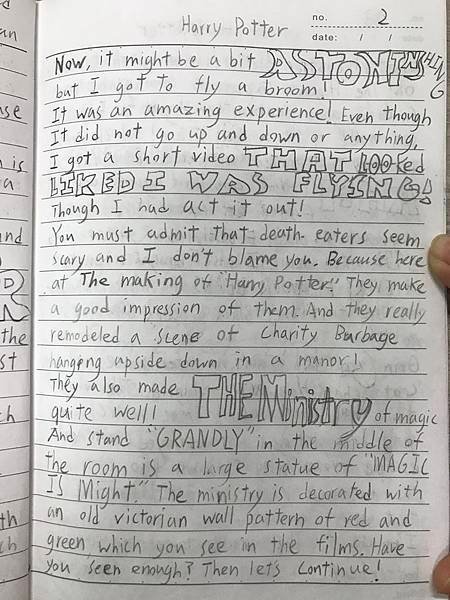 Harry Potter
no. 2
date: / /
Now, it might be a bit ASTONISHING
but I got to fly a broom!
It was an amazing experience! Even though
It did not go up and down or anything,
I got a short video THAT LOOKed
LIKED I WAS FLYING!
Though I had act it out!
You must admit that death-eaters seem
scary and I don't blame you. Because here
at The making of "Harry Potter". They make
a good impression of them. And they really
remodeled a scene of Charity Burbage
hangeng upside down in a manor!
They also made THE Ministry of magic
quite well!
And stand "GRANDLY" in the middle of
the room is a large statue of "MAGIC
IS Might." The ministry is decorated with
an old victorian wall pattern of red and
green which you see in the films. Have
you seen enough? Then let's continue!
an
is
a
and
R
the
st
th
ch